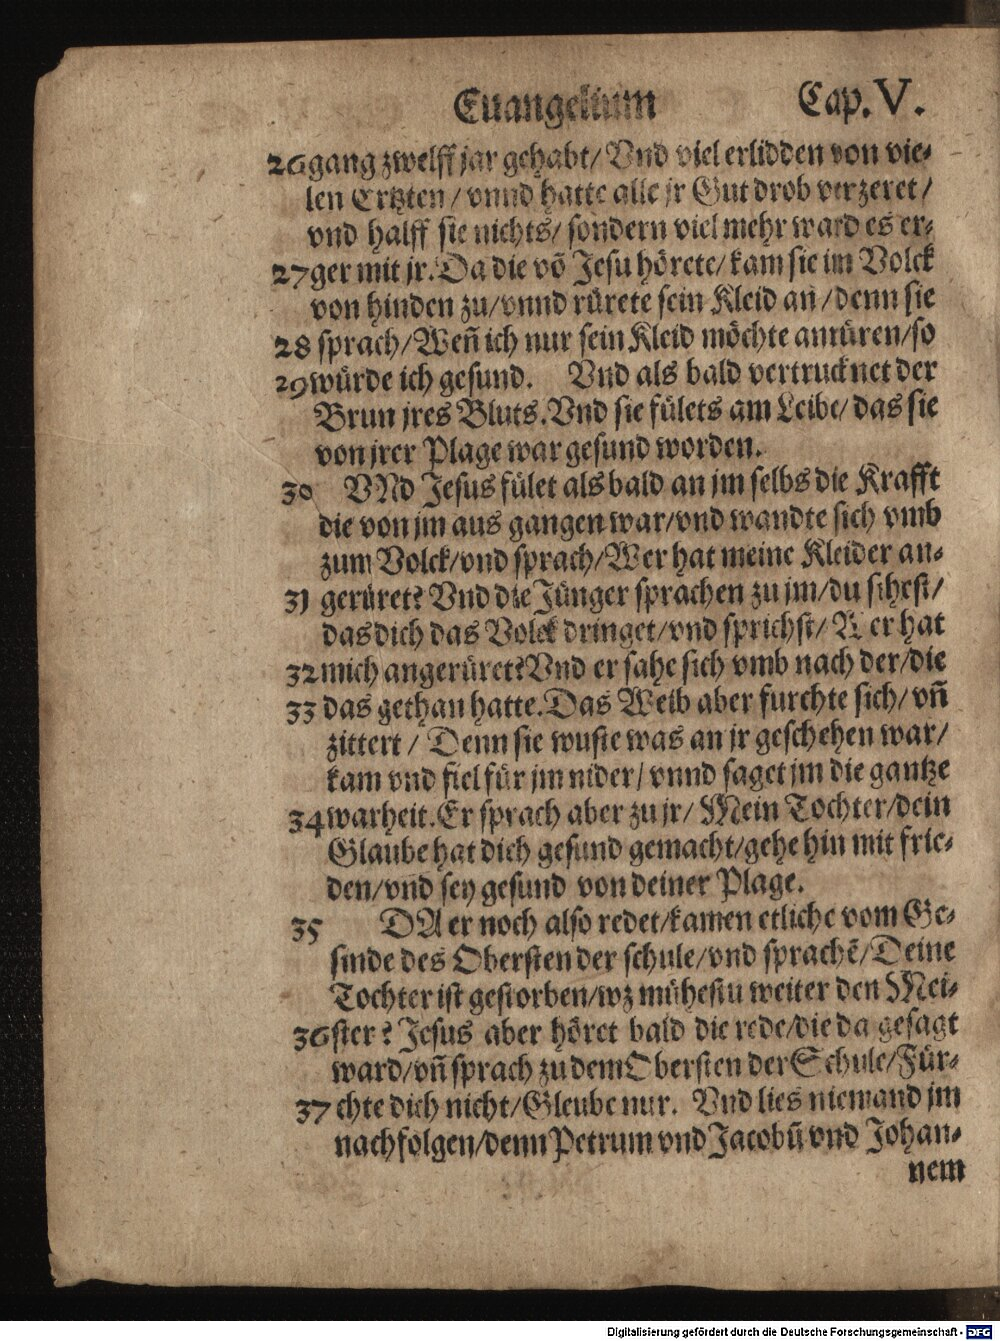 Euangelium Cap. V.
26 gang zwelff jar gehabt / Vnd viel erlidden von vie-
len Ertzten / vnnd hatte alle jr Gut drob verzeret /
vnd halff sie nichts / sondern viel mehr ward es er-
27 ger mit jr. Da die võ Jesu hörete / kam sie im Volck
von hinden zu / vnnd rürete sein Kleid an / denn sie
28 sprach / Weñ ich nur sein Kleid möchte anrüren / so
29 würde ich gesund. Vnd als bald vertrucknet der
Brun jres Bluts. Vnd sie fülets am Leibe / das sie
von jrer Plage war gesund worden.
30 VNd Jesus fület als bald an jm selbs die Krafft
die von jm aus gangen war / vnd wandte sich vmb
zum Volck / vnd sprach / Wer hat meine Kleider an-
31 gerüret? Vnd die Jünger sprachen zu jm / du sihest /
das dich das Volck dringet / vnd sprichst / Wer hat
32 mich angerüret? Vnd er sahe sich vmb nach der / die
33 das gethan hatte. Das Weib aber furchte sich / vñ
zittert / Denn sie wuste was an jr geschehen war /
kam vnd fiel für jm nider / vnnd saget jm die gantze
34 warheit. Er sprach aber zu jr / Mein Tochter / dein
Glaube hat dich gesund gemacht / gehe hin mit frie-
den / vnd sey gesund von deiner Plage.
35 DA er noch also redet / kamen etliche vom Ge-
sinde des Obersten der schule / vnd sprachẽ / Deine
Tochter ist gestorben / wz mühestu weiter den Mei-
36 ster? Jesus aber höret bald die rede / die da gesagt
ward / vñ sprach zu dem Obersten der Schule / Für-
37 chte dich nicht / Gleube nur. Vnd lies niemand jm
nachfolgen / denn Petrum vnd Jacobũ vnd Johan-
nem
Digitalisierung gefördert durch die Deutsche Forschungsgemeinschaft - DFG